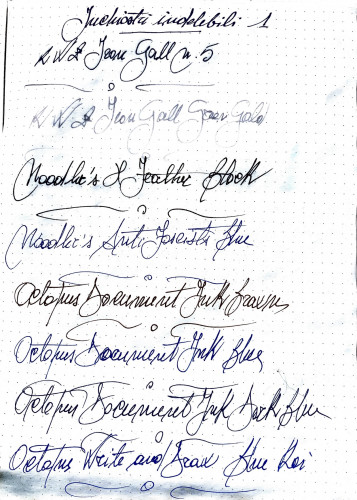 Inchiostri indelebili 1
Iron Gall n. 5
Iron Gall Gold
Noodler's X-Feather Black
Noodler's Anti Feather Blue
Octopus Document Ink Brown
Octopus Document Ink Blue
Octopus Document Ink Dark Blue
Octopus Write and Draw Blue Koi